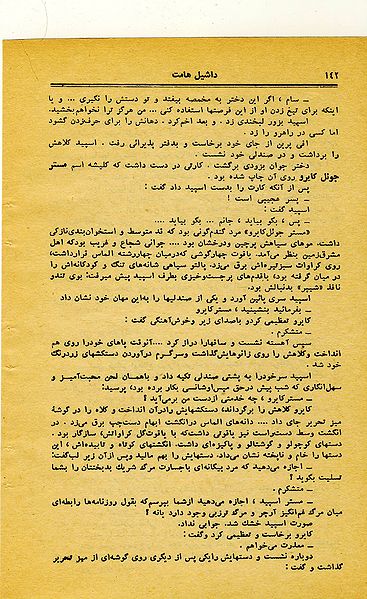 ۱۴۲
داشیل هامت
ــ سام ، اگر این دختر به مخمصه بیفتد و تو دستش را نگیری ... و یا
اینکه برای تیغ زدن او از این فرصتها استفاده کنی ... من هرگز ترا نخواهم بخشید.
اسپید بزور لبخندی زد . و بعد اخم‌کرد . دهانش را برای حرف‌زدن گشود
اما کسی در راهرو را زد .
افی پرین از جای خود برخاست و بدفتر پذیرائی رفت . اسپید کلاهش
را برداشت و در صندلی خود نشست .
دختر جوان بزودی برگشت . کارتی در دست داشت که کلیشه اسم مستر
جوئل کایرو روی آن چاپ شده بود .
پس از آنکه کارت را بدست اسپید داد گفت :
ــ پسر عجیبی است !
اسپید گفت :
ــ پس ، بگو بیاید ، جانم ... بگو بیاید ....
«مستر جوئل‌کایرو» مرد گندم‌گونی بود که قد متوسط و استخوان‌بندی‌نازکی
داشت. موهای سیاهش پرچین ودرخشان بود .... جوانی شجاع و غریب بودکه اهل
مشرق‌زمین بنظر می‌آمد. یاقوت چهارگوشی که‌درمیان چهاررشته الماس قرارداشت،
روی کراوات سبزتیره‌اش برق می‌زد. پالتو سیاهی شانه‌های تنگ و کودکانه‌اش را
در میان گرفته بود؛ باقدم‌های پرجست‌وخیزی بطرف اسپید پیش میرفت؛ بوی تندو
نافذ «شیپر» بدنبالش بود.
اسپید سری پائین آورد و یکی از صندلیها را به‌این مهمان خود نشان داد
ــ بفرمائید بنشینید ، مسترکایرو
کایرو تعظیمی کردو باصدای زیر وخوش‌آهنگی گفت :
ــ متشکرم .
سپس آهسته نشست و ساقهارا دراز کرد ....آنوقت پاهای خودرا روی هم
انداخت وکلاهش را روی زانوهایش‌گذاشت وسرگرم درآوردن دستکشهای زردرنگ
خود شد .
اسپید سرخودرا به پشتی صندلی تکیه داد و باهمان لحن محبت‌آمیز و
سهل‌انگاری که شب پیش درحق میس‌اوشانسی بکار برده بود، پرسید:
ــ مسترکایرو ، چه خدمتی ازدست من برمی‌آید ؟
کایرو کلاهش را برگرداند؛ دستکشهایش رادرآن انداخت و کلاه را در گوشهٔ
میز تحریر جای داد .... دانه‌های الماس درانگشت ابهام دست‌چپ برق می‌زد . در
انگشت وسط دست‌راست نیز یاقوتی داشت‌که با یاقوت‌گل کراواتش، سازگار بود .
دستهای کوچولو و گوشتالو و پاکیزه‌ای داشت. انگشتهای کوتاه و تابیده‌اش ، این
دستها را خام و ناپخته نشان می‌داد. دستهایش را بهم مالید وپس ازآن زیر لب‌گفت:
ــ اجازه می‌دهید که مرد بیگانه‌ای باجسارت مرگ شریک بدبختتان را بشما
تسلیت بگوید ؟
ــ متشکرم .
ــ مستر اسپید ، اجازه می‌دهید ازشما بپرسم‌که بقول روزنامه‌ها رابطه‌ای
میان مرگ غم‌انگیز آرچر و مرگ ترزبی وجود دارد یانه ؟
صورت اسپید خشک شد. جوابی نداد.
کایرو برخاست و تعظیمی کرد وگفت :
ــ معذرت می‌خواهم .
دوباره نشست و دستهایش رایکی پس از دیگری روی گوشه‌ای از میز تحریر
گذاشت و گفت :